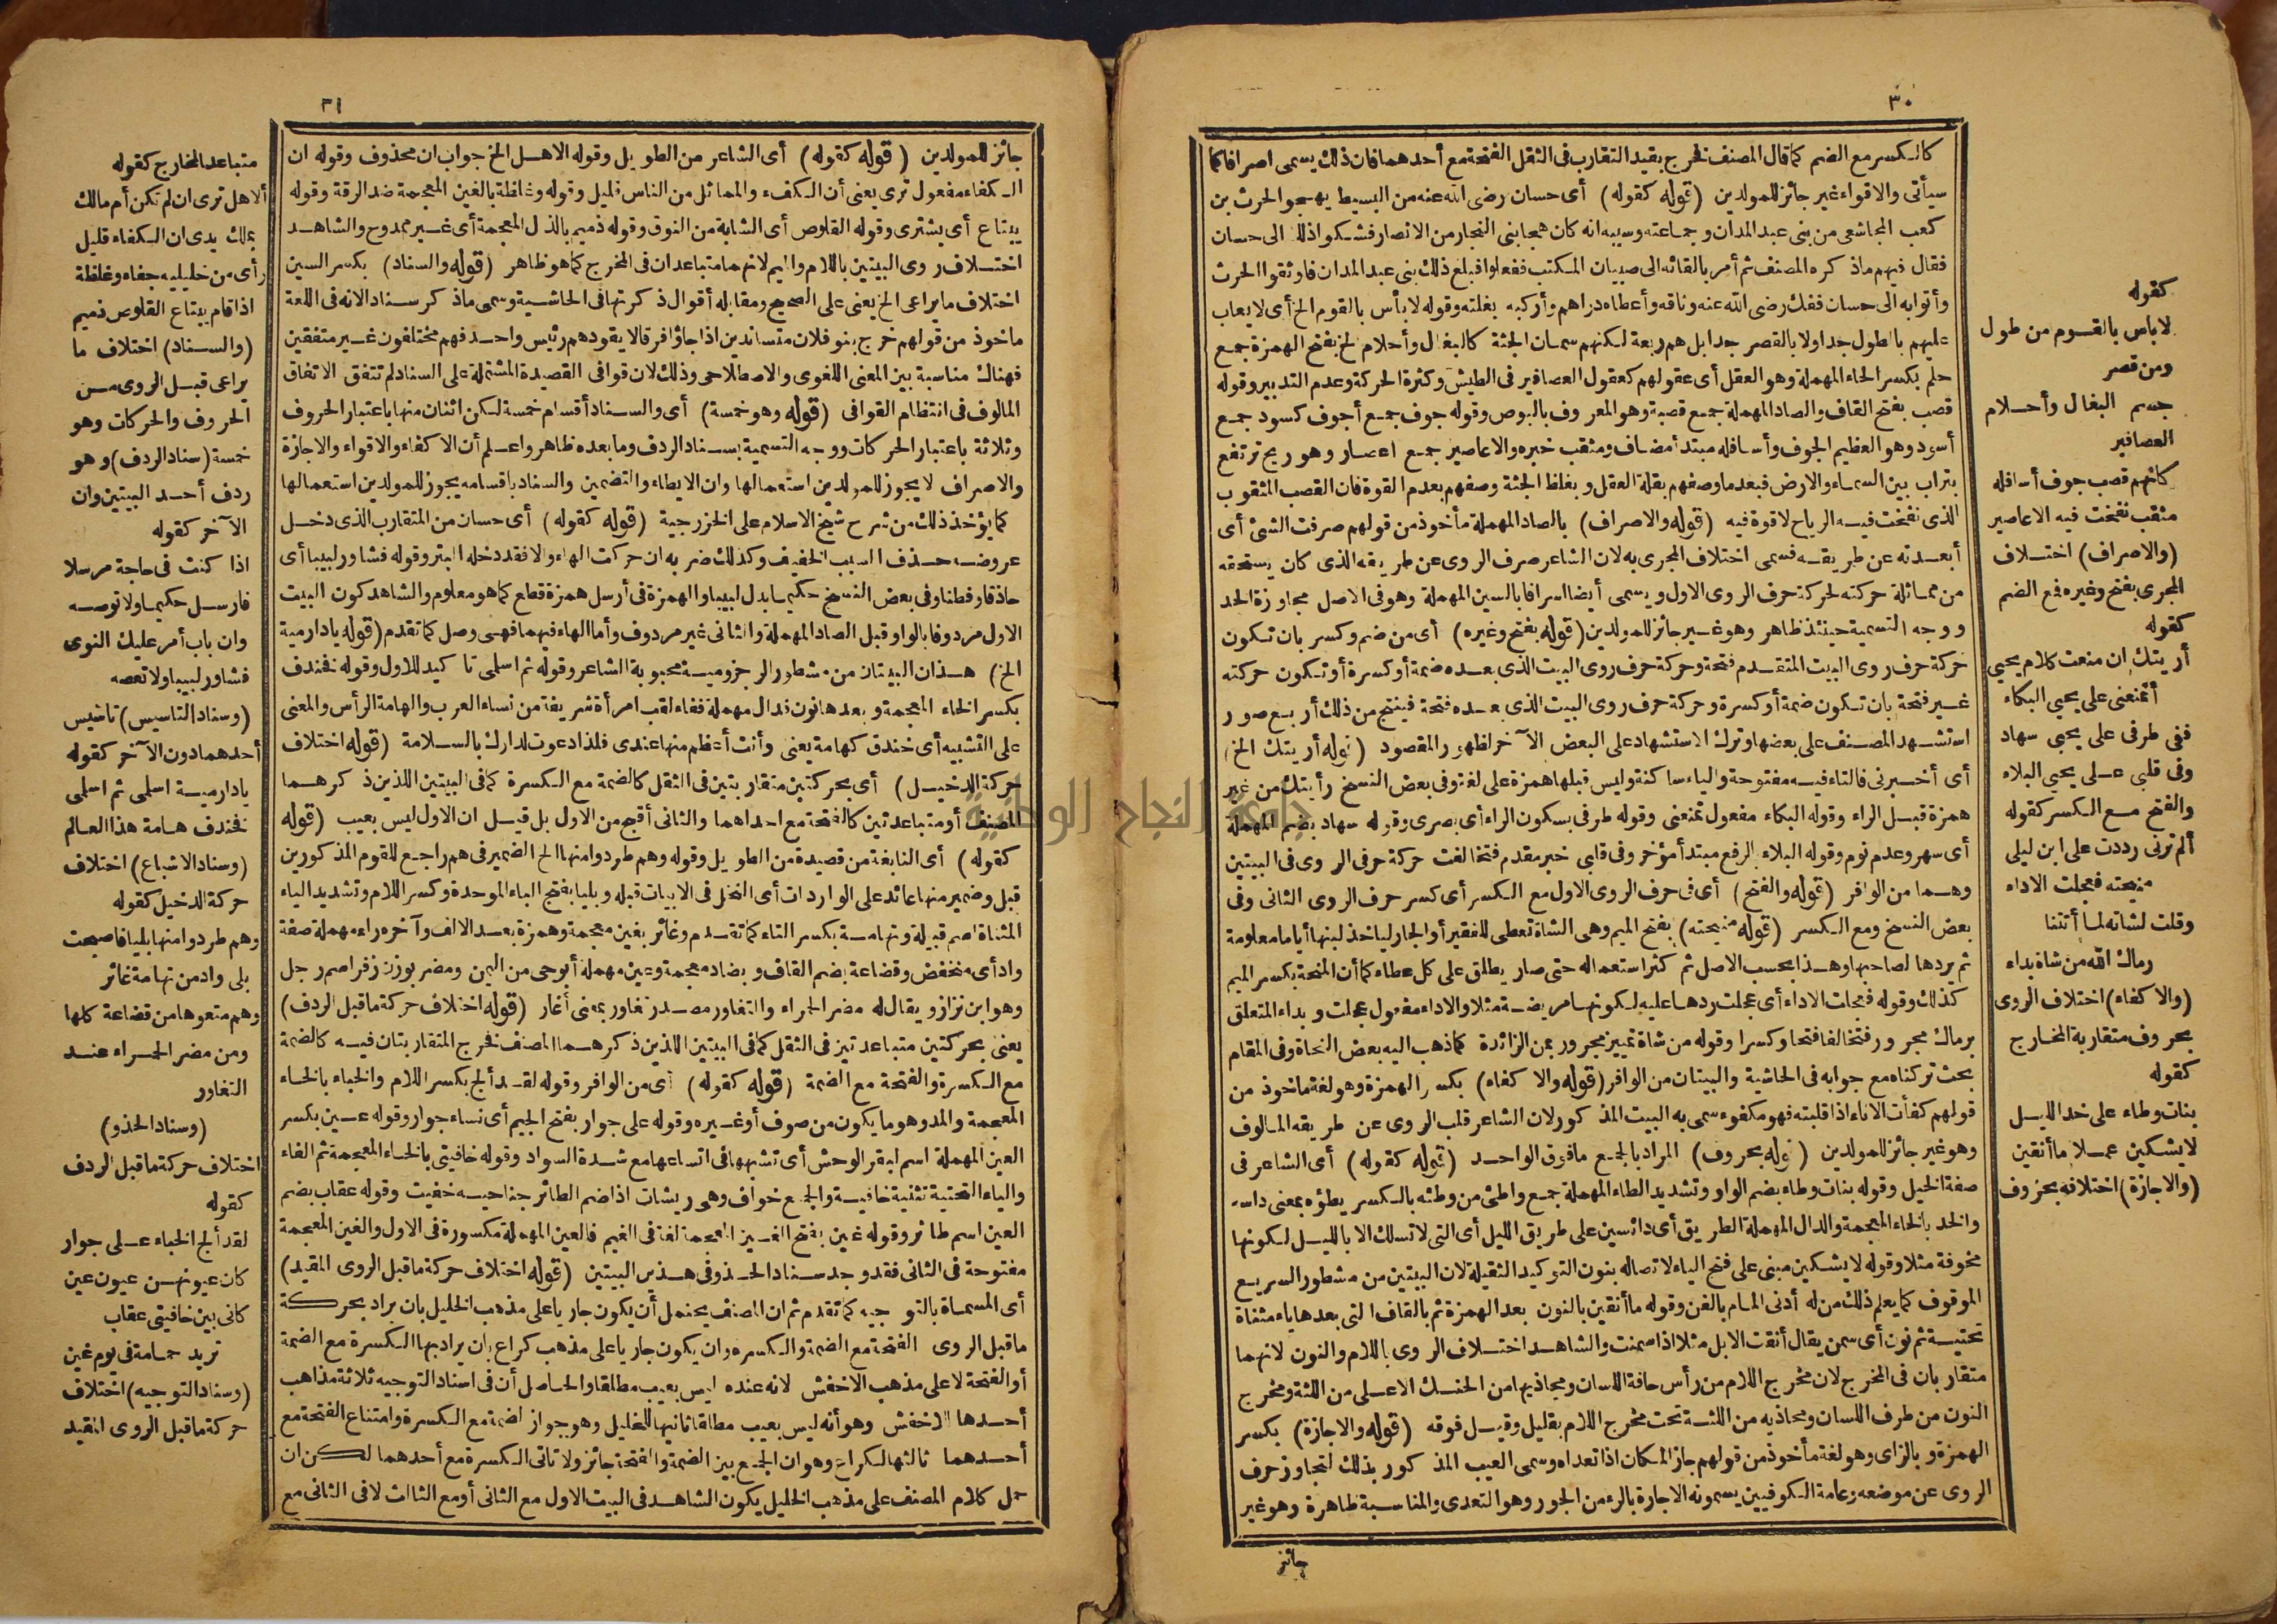 ٣٠
كالكسر مع الضم كما قال المصنف فخرج بقيد التقارب في الثقل الفتحة مع أحدهما فان ذلك يسمى اصرافا كما
سيأتى والاقواء غير جائز للمولدين (قوله كقوله) أى حسان رضى الله عنه من البسيط يهجو الحرث بن
كعب المجاشعى من بنى عبد المدان وجماعته وسببه انه كان هجا بنى النجار من الانصار فشكوا ذلك الى حسان
فقال فيهم ماذكره المصنف ثم أمر بالقائه الى صبيان المكتب ففعلوا فبلغ ذلك بنى عبد المدان فأوثقوا الحرث
وأتوا به الى حسان ففك رضى الله عنه وثاقه وأعطاه دراهم وأركبه بغلته وقوله لا بأس بالقوم الخ أى لا يعاب
عليهم بالطول جدا ولا بالقصر جدا بل هم ربعة لكنهم سمان الجثة كالبغال وأحلام الخ بفتح الهمزة جمع
حلم بكسر الحاء المهملة وهو العقل أى عقولهم كعقول العصافير فى الطيش وكثرة الحركة وعدم التدبير وقوله
قصب بفتح القاف والصاد المهملة جمع قصبة وهو المعروف بالبوص وقوله جوف جمع أجوف كسود جمع
أسود وهو العظيم الجوف وأسافله مبتدأ مضاف ومثقب خبره والاعاصير جمع اعصار وهو ريح ترتفع
بتراب بين السماء والارض فبعد ما وصفهم بقلة العقل وبغلظ الجثة وصفهم بعدم القوة فان القصب المثقوب
الذى نفخت فيه الرياح لا قوة فيه (قوله والاصراف) بالصاد المهملة مأخوذ من قولهم صرفت الشئ أى
أبعدته عن طريقه فسمى اختلاف المجرى به لان الشاعر صرف الروى عن طريقه الذى كان يستحقه
من مماثلة حركته لحركة حرف الروى الاول ويسمى أيضا اسرافا بالسين المهملة وهو فى الاصل مجاوزة الحد
ووجه التسمية حينئذ ظاهر وهو غير جائز للمولدين (قوله بفتح وغيره) أى من ضم وكسر بان تكون
حركة حرف روى البيت المتقدم فتحة وحركة حرف روى البيت الذى بعده ضمة أو كسرة أو تكون حركته
غير فتحة بان تكون ضمة أو كسرة وحركة حرف روى البيت الذى بعده فتحة فينتج من ذلك أربع صور
استشهد المصنف على بعضها وترك الاستشهاد على البعض الآخر لظهور المقصود (قوله أريتك الخ)
أى أخبرنى فالتاء فيه مفتوحة والياء ساكنة وليس قبلها همزة على لغة وفى بعض النسخ رأيتك من غير
همزة قبل الراء وقوله البكاء مفعول تمنعنى وقوله طرفى بسكون الراء أى بصرى وقوله سهاد بضم المهملة
أى سهر وعدم نوم وقوله البلاء بالرفع مبتدأ مؤخر وفى قلبى خبر مقدم فتخالفت حركة حرفى الروى فى البيتين
وهما من الوافر (قوله والفتح) أى فى حرف الروى الاول مع الكسر أى كسر حرف الروى الثانى وفى
بعض النسخ ومع الكسر (قوله منيحته) بفتح الميم وهى الشاة تعطى للفقير أو الجار لياخذ لبنها أياما معلومة
ثم يردها لصاحبها وهذا بحسب الاصل ثم كثر استعماله حتى صار يطلق على كل عطاء كما أن المنحة بكسر الميم
كذلك وقوله فعجلت الاداء أى عجلت ردها عليه لكونها مريضة مثلا والاداء مفعول عجلت وبداء المتعلق
برماك مجرور فتخالفا فتحا وكسرا وقوله من شاة تمييز مجرور بمن الزائدة كما ذهب اليه بعض النحاة وفى المقام
بحث تركناه مع جوابه فى الحاشية والبيتان من الوافر (قوله والاكفاء) بكسر الهمزة وهو لغة مأخوذ من
قولهم كفأت الاناء اذا قلبته فهو مكفوء سمى به البيت المذكور لان الشاعر قلب الروى عن طريقه المالوف
وهو غير جائز للمولدين (قوله بحروف) المراد بالجمع مافوق الواحد (قوله كقوله) أى الشاعر فى
صفة الخيل وقوله بنات وطاء بضم الواو وتشديد الطاء المهملة جمع واطئ من وطئه بالكسر يطؤه بمعنى داسه
والخد بالخاء المعجمة والدال المهملة الطريق أى دائسين على طريق الليل أى التى لا تسلك الا بالليل لكونها
مخوفة مثلا وقوله لا يشكين مبنى على فتح الياء لاتصاله بنون التوكيد الثقيلة لان البيتين من مشطور السريع
الموقوف كما يعلم ذلك من له أدنى المام بالفن وقوله ما أنقين بالنون بعد الهمزة ثم بالقاف التى بعدها ياء مثناة
تحتية ثم نون أى سمن يقال أنقت الابل مثلا اذا سمنت والشاهد اختلاف الروى باللام والنون لانهما
متقاربان فى المخرج لان مخرج اللام من رأس حافة اللسان ومحاذيها من الحنك الاعلى من اللثة ومخرج
النون من طرف اللسان ومحاذيه من اللثة تحت مخرج اللام بقليل وقيل فوقه (قوله والاجازة) بكسر
الهمزة وبالزاى وهو لغة مأخوذ من قولهم جاز المكان اذا تعداه وسمى العيب المذكور بذلك لتجاوز حرف
الروى عن موضعه وعامة الكوفيين يسمونه الاجارة بالراء من الجور وهو التعدى والمناسبة ظاهرة وهو غير
جائز
كقوله
لاباس بالقوم من طول
ومن قصر
جسم البغال وأحلام
العصافير
كانهم قصب جوف أسافله
مثقب نفخت فيه الاعاصير
(والاصراف) اختلاف
المجرى بفتح وغيره فمع الضم
كقوله
أريتك ان منعت كلام يحيى
أتمنعنى على يحيى البكاء
ففى طرفى على يحيى سهاد
وفى قلبى على يحيى البلاء
والفتح مع الكسر كقوله
ألم ترنى رددت على ابن ليلى
منيحته فعجلت الاداء
وقلت لشاته لما أتتنا
رماك الله من شاة بداء
(والاكفاء) اختلاف الروى
بحروف متقاربة المخارج
كقوله
بنات وطاء على خد الليل
لا يشكين عملا ما أنقين
(والاجازة) اختلافه بحروف
٣١
جائز للمولدين (قوله كقوله) أى الشاعر من الطويل وقوله الاهل الخ جواب ان محذوف وقوله ان
الكفاء مفعول ترى يعنى أن الكفء والمماثل من الناس قليل وقوله وغلظة بالغين المعجمة ضد الرقة وقوله
يبتاع أى يشترى وقوله القلوص أى الشابة من النوق وقوله ذميم بالذال المعجمة أى غير ممدوح والشاهد
اختلاف روى البيتين باللام والميم لانهما متباعدان فى المخرج كما هو ظاهر (قوله والسناد) بكسر السين
اختلاف ما يراعى الخ يعنى على الصحيح ومقابله أقوال ذكرتها فى الحاشية وسمى ماذكر سنادا لانه فى اللغة
ماخوذ من قولهم خرج بنو فلان متساندين اذا جاؤا فرقا لا يقودهم رئيس واحد فهم مختلفون غير متفقين
فهناك مناسبة بين المعنى اللغوى والاصطلاحى وذلك لان قوافى القصيدة المشتملة على السناد لم تتفق الاتفاق
المالوف فى انتظام القوافى (قوله وهو خمسة) أى والسناد أقسام خمسة لكن اثنان منها باعتبار الحروف
وثلاثة باعتبار الحركات ووجه التسمية بسناد الردف وما بعده ظاهر واعلم أن الاكفاء والاقواء والاجازة
والاصراف لا يجوز للمولدين استعمالها وان الايطاء والتضمين والسناد باقسامه يجوز للمولدين استعمالها
كما يؤخذ ذلك من شرح شيخ الاسلام على الخزرجية (قوله كقوله) أى حسان من المتقارب الذى دخل
عروضه حذف السبب الخفيف وكذلك ضربه ان حركت الهاء والا فقد دخله البتر وقوله فشاور لبيبا أى
حاذقا وفطنا وفى بعض النسخ حكيما بدل لبيبا والهمزة فى أرسل همزة قطع كما هو معلوم والشاهد كون البيت
الاول مردوفا بالواو قبل الصاد المهملة والثانى غير مردوف وأما الهاء فيهما فهى وصل كما تقدم (قوله يادارمية
الخ) هذان البيتان من مشطور الرجز ومية محبوبة الشاعر وقوله ثم اسلمى تاكيد للاول وقوله نفخندف
بكسر الخاء المعجمة وبعدها نون فدال مهملة ففاء لقب امرأة شريفة من نساء العرب والهامة الرأس والمعنى
على التشبيه أى خندف كهامة يعنى وأنت أعظم منها عندى فلذا دعوت لدارك بالسلامة (قوله اختلاف
حركة الدخيل) أى بحركتين متقاربتين فى الثقل كالضمة مع الكسرة كما فى البيتين اللذين ذكرهما
المصنف أو متباعدتين كالفتحة مع احداهما والثانى أقبح من الاول بل قيل ان الاول ليس بعيب (قوله
كقوله) أى النابغة من قصيدة من الطويل وقوله وهم طردوا منها الخ الضمير فى هم راجع للقوم المذكورين
قبل وضمير منها عائد على الواردات أى النخل فى الابيات قبله وبليا بفتح الباء الموحدة وكسر اللام وتشديد الياء
المثناة اسم قبيلة وتهامة بكسر التاء كما تقدم وغائر بغين معجمة وهمزة بعد الالف وآخره راء مهملة صفة
واد أى منخفض وقضاعة بضم القاف وبضاد معجمة وعين مهملة أبو حى من اليمن ومضر بوزن زفر اسم رجل
وهو ابن نزار ويقال له مضر الحمراء والتغاور مصدر تغاور بمعنى أغار (قوله اختلاف حركة ماقبل الردف)
يعنى بحركتين متباعدتين فى الثقل كما فى البيتين اللذين ذكرهما المصنف فخرج المتقاربتان فيه كالضمة
مع الكسرة والفتحة مع الضمة (قوله كقوله) أى من الوافر وقوله لقد ألج بكسر اللام والخباء بالخاء
المعجمة والمد وهو ما يكون من صوف أو غيره وقوله على جوار بفتح الجيم أى نساء جوار وقوله عين بكسر
العين المهملة اسم لبقر الوحش أى تشبهها فى اتساعها مع شدة السواد وقوله خافيتى بالخاء المعجمة ثم الفاء
والياء التحتية تثنية خافية والجمع خواف وهى ريشات اذا ضم الطائر جناحيه خفيت وقوله عقاب بضم
العين اسم طائر وقوله غين بفتح الغين المعجمة لغة فى الغيم فالعين المهملة مكسورة فى الاول والغين المعجمة
مفتوحة فى الثانى فقد وجد سناد الحذو فى هذين البيتين (قوله اختلاف حركة ماقبل الروى المقيد)
أى المسماة بالتوجيه كما تقدم ثم ان المصنف يحتمل أن يكون جاريا على مذهب الخليل بان يراد بحركة
ماقبل الروى الفتحة مع الضمة والكسره وان يكون جاريا على مذهب كراع بان يراد بها الكسرة مع الضمة
أو الفتحة لا على مذهب الاخفش لانه عنده ليس بعيب مطلقا والحاصل أن فى اسناد التوجيه ثلاثة مذاهب
أحدها الاخفش وهو أنه ليس بعيب مطلقا ثانيها للخليل وهو جواز الضمة مع الكسرة وامتناع الفتحة مع
أحدهما ثالثها لكراع وهو ان الجمع بين الضمة والفتحة جائز ولا تاتى الكسرة مع أحدهما لكن ان
حمل كلام المصنف على مذهب الخليل يكون الشاهد فى البيت الاول مع الثانى أو مع الثالث لا فى الثانى مع
متباعد المخارج كقوله
ألا هل ترى ان لم تكن أم مالك
بملك يدى ان الكفاء قليل
رأى من خليليه جفاء وغلظة
اذا قام يبتاع القلوص ذميم
(والسناد) اختلاف ما
يراعى قبل الروى من
الحروف والحركات وهو
خمسة (سناد الردف) وهو
ردف أحد البيتين وان
الآخر كقوله
اذا كنت فى حاجة مرسلا
فارسل حكيما ولا توصه
وان باب أمر عليك التوى
فشاور لبيبا ولا تعصه
(وسناد التاسيس) تاسيس
أحدهما دون الآخر كقوله
يادارمية اسلمى ثم اسلمى
فخندف هامة هذا العالم
(وسناد الاشباع) اختلاف
حركة الدخيل كقوله
وهم طردوا منها بليا فاصبحت
بلى واد من تهامة غائر
وهم منعوها من قضاعة كلها
ومن مضر الحمراء عند
التغاور
(وسناد الحذو)
اختلاف حركة ماقبل الردف
كقوله
لقد ألج الخباء على جوار
كان عيونهن عيون عين
كانى بين خافيتى عقاب
تريد حمامة فى يوم غين
(وسناد التوجيه) اختلاف
حركة ماقبل الروى المقيد
جامعة النجاح الوطنية